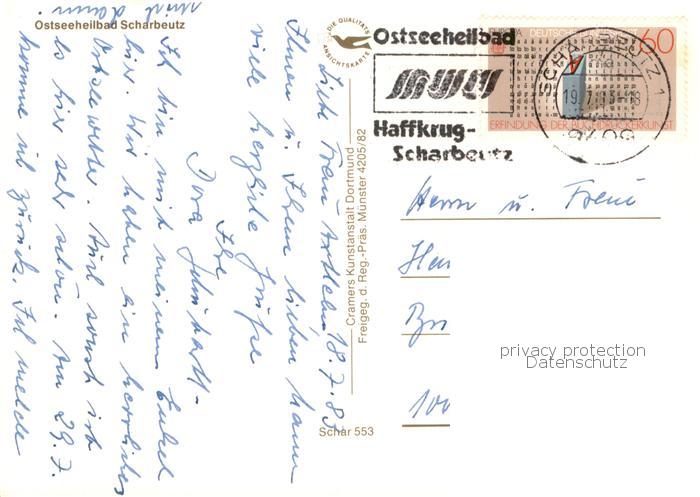 Ostseeheilbad Scharbeutz
DIE QUALITÄTS
ANSICHTSKARTE
18.7.83
Liebe Frau
Ihnen u. Ihrem lieben Mann
viele herzliche Grüße
Ihre
Dora
Ich bin mit meinem Enkel
hier. Wir haben ein herrliches
Ostseewetter sonst ist
es hier sehr schön. Am 29.7.
komme ich zurück. Ich melde
mich dann.
Cramers Kunstanstalt Dortmund
Freigeg. d. Reg.-Präs. Münster 4205/82
Schar 553
Ostseeheilbad
Haffkrug-
Scharbeutz
SCHARBEUTZ 1
19.7.83-18
2409
DEUTSCHE
60
ERFINDUNG DER BUCHDRUCKERKUNST
Herrn u. Frau
Her
100
privacy protection
Datenschutz